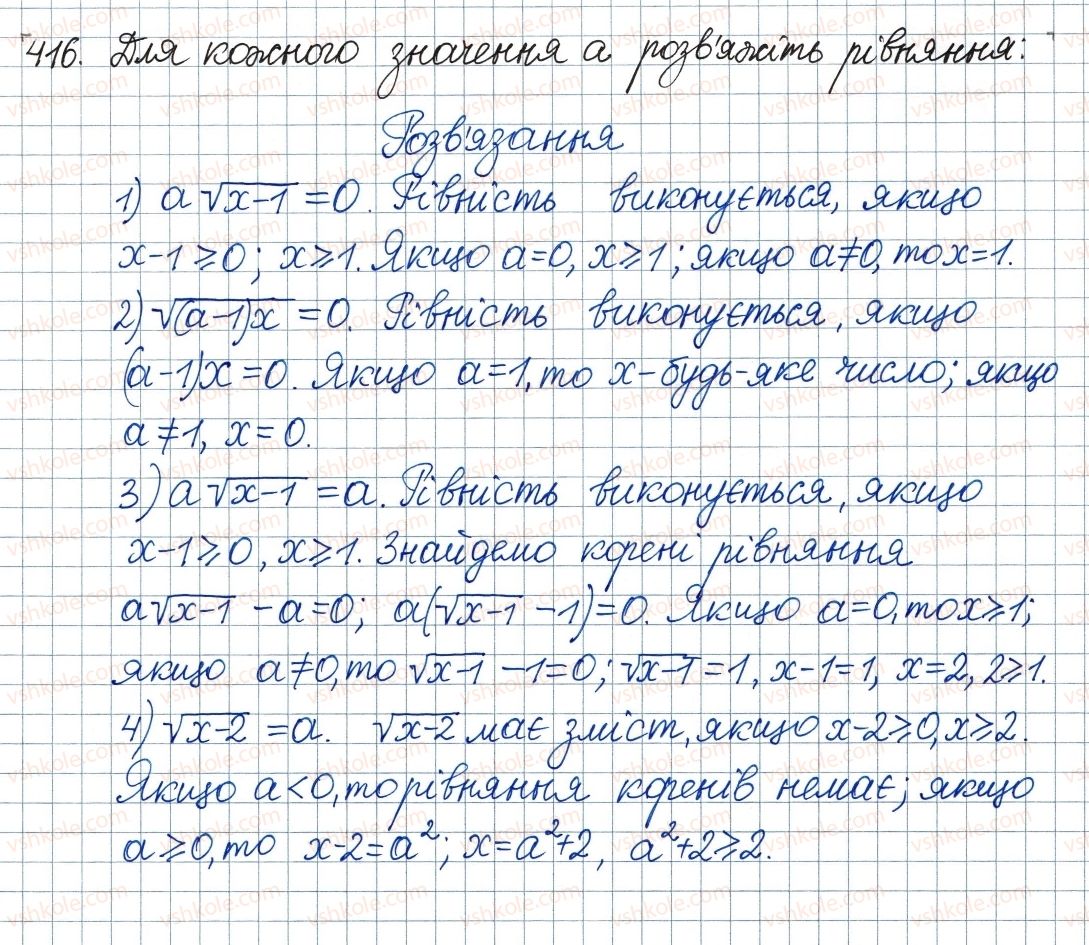 416. Для кожного значення a розв'яжіть рівняння:
Розв'язання
1) a√(x-1) = 0. Рівність виконується, якщо
x-1⩾0; x⩾1. Якщо a=0, x⩾1; якщо a≠0, то x=1.
2) √((a-1)x) = 0. Рівність виконується, якщо
(a-1)x=0. Якщо a=1, то x-будь-яке число; якщо
a≠1, x=0.
3) a√(x-1) = a. Рівність виконується, якщо
x-1⩾0, x⩾1. Знайдемо корені рівняння
a√(x-1) - a=0; a(√(x-1) - 1)=0. Якщо a=0, то x⩾1;
якщо a≠0, то √(x-1) - 1=0; √(x-1) = 1, x-1=1, x=2, 2⩾1.
4) √(x-2) = a. √(x-2) має зміст, якщо x-2⩾0, x⩾2.
Якщо a<0, то рівняння коренів немає; якщо
a⩾0, то x-2=a²; x=a²+2, a²+2⩾2.